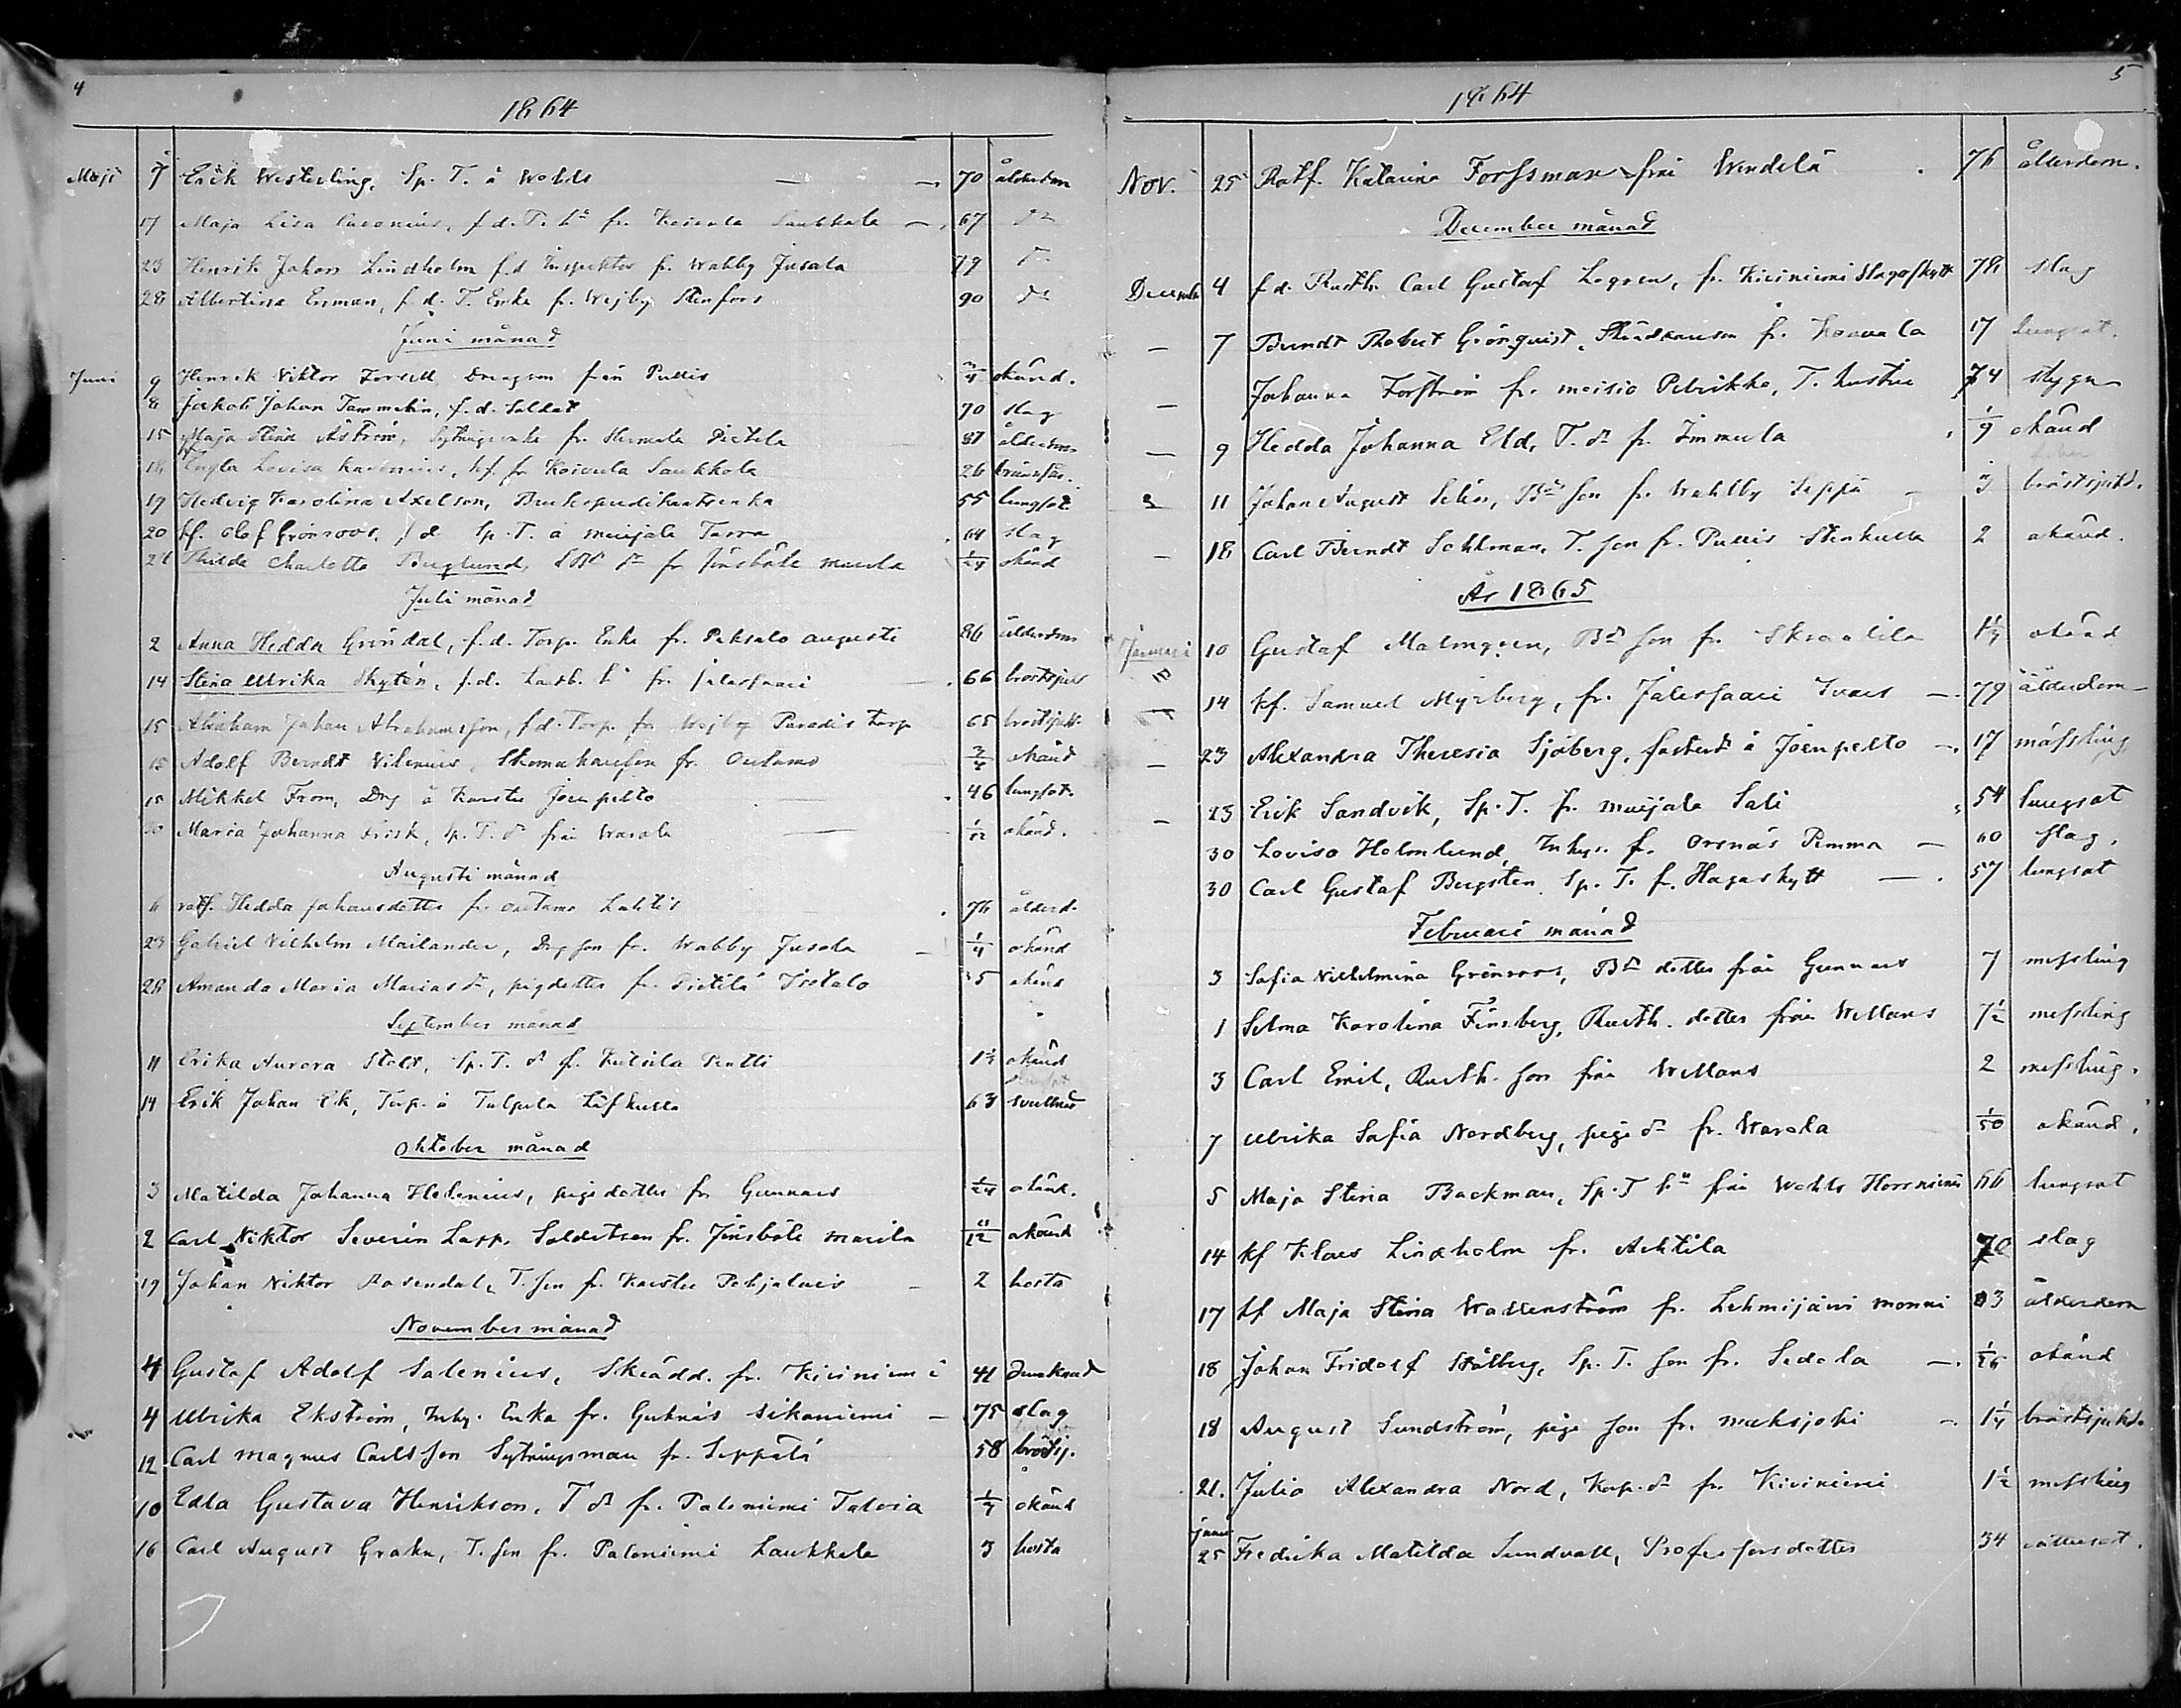 4
1864
Maji 7 Erik Westerling, Sp. T. å Wohls — 70 ålderdom
17 Maja Lisa, f.d. T. hu fr. Koivula Laukkala — 67 do
23 Henrik Johan Lindholm f.d. Inspektor fr. Wabby Jusala 79 do
28 Albertina Enman, f.d. T. Enka fr. Wejby Stenfors 90 do
Juni månad
Juni 9 Henrik Viktor Forsell, Dragson från Pullis 3/4 okänd.
8 Jakob Johan Tammelin, f.d. Soldat 70 slag
15 Maja Stina Åström, Sytningsenka fr. Pietilä 87 ålderdom
18 Engla Lovisa, kf fr Koivula Laukkala 26
19 Hedvig Karolina Axelson, Brukspredikantenka 55 lungsot
20 kf. Olof Grönroos, f d Sp. T. å muijala Tarra 64 slag
Thilda Charlotta Berglund, dr fr Jönsböle 1/24 okänd
Juli månad
2 Anna Hedda Gröndal, f.d. Torp. Enka fr. Paksalo augusti 86 ålderdom
14 Stina Ulrika Skytén, f.d. hu fr. Jalassaari 66 bröstsjukd
15 Abraham Johan Abrahamsson, f d. Torp. fr Wejby Paradis torp 65 bröstsjukd.
15 Adolf Berndt Vilenius, Skomakarson fr. Outamo 3/4 okänd
15 Mikkel From, Drg å Karstu Joenpelto 46 lungsot.
Maria Johanna Frisk, Sp. T. dr från Warola 1/12 okänd.
Augusti månad
6 rotf. Hedda Johansdotter fr. outamo Lahtis 76 ålderd.
23 Gabriel Vilhelm Mailander, Drg son fr. Wabby Jusala — 1/4 okänd
28 Amanda Maria Mariasdr, pigdotter fr. Pietilä Isotalo 5 okänd
September månad
11 Erika Aurora Stolt, Sp. T. dr fr. Kutsila Pentti okänd
14 Erik Johan Ek, Torp. å Talpela Löfkulla 63 svullnad
Oktober månad
3 Matilda Johanna Helenius, pigedotter fr Gunnars 1/24 okänd.
2 Carl Viktor Severin Lapp, Soldatson fr. Jönsböle maula 11/12 okänd
19 Johan Viktor Rosendal, T. son fr. Karstu Pohjalais — 2 hosta
November månad
4 Gustaf Adolf Salenius, Skrädd. fr. Kiviniemi 41 drunknad
4 Ulrika Ekström, Inhy. Enka fr. Gutnäs Sikaniemi — 75 slag
12 Carl Magnus Carlsson Sytningsman fr. Seppälä 58 bröstsj.
10 Edla Gustava Henrikson, T dr fr. Paloniemi Talvia okänd
16 Carl August Grahn, T. son fr. Paloniemi Laukkala 3 hosta
5
1864
Nov. 25 Rotf. Katarina Forssman från Wendelä 76 ålderdom.
December månad
Decemb 4 f d. Rusth. Carl Gustaf Logren, fr. Kiviniemi Hagaskytt 78 slag
— 7 Berndt Robert Grönquist, Skräddareson fr. Kouvala 17 lungsot.
— Johanna Forström fr. moisio Pelrikko, T. hustru 74 stygn
— 9 Hedda Johanna Eld, T. dr fr. Immula okänd
11 Johan August Selin, Bd son fr. Wahlby Seppä — 3 bröstsjukd.
— 18 Carl Berndt Sohlman, T. son fr. Pullis Stenkulla 2 okänd.
År 1865
Januari 10 Gustaf Malmgren, Bd son fr. Skraatila okänd
14 kf. Samuel Myrberg, fr. Jalassaari Ivars — 79 ålderdom
— 23 Alexandra Theresia Sjöberg, fosterd å Joenpelto — 17 mässling
— 23 Erik Sandvik, Sp. T. fr. muijala Sali 54 lungsot
30 Lovisa Holmlund, Inhys. fr. Orsnäs Pemma — 60 slag.
30 Carl Gustaf Bergsten, Sp. T. fr. Hagaskytt — 57 lungsot
Februari månad
3 Sofia Vilhelmina Grönroos, Bd dotter från Gunnars 7 messling
1 Selma Karolina Finsberg, Rusth. dotter från Wellans 7½ messling
3 Carl Emil, Rusth. son från Wellans 2 messling.
7 Ulrika Sofia Nordberg, pige dr fr. Warola 1/50 okänd.
5 Maja Stina Backman, Sp. T hu från Wohls Horsniemi 66 lungsot
14 kf Klaes Lindholm fr. Achtila 70 slag
17 kf Maja Stina Wallenström fr. Lehmijärvi monni 83 ålderdom
18 Johan Fridolf Stålberg, Sp. T. son fr. Sedola — okänd
18 August Sundström, pige son fr. maksjoki — 1¼ bröstsjukd.
21. Julia Alexandra Nord, Korp. dr fr. Kiviniemi 1½ messling
Janu 25 Fredrika Matilda Sundvall, Professorsdotter 34 vattusot.